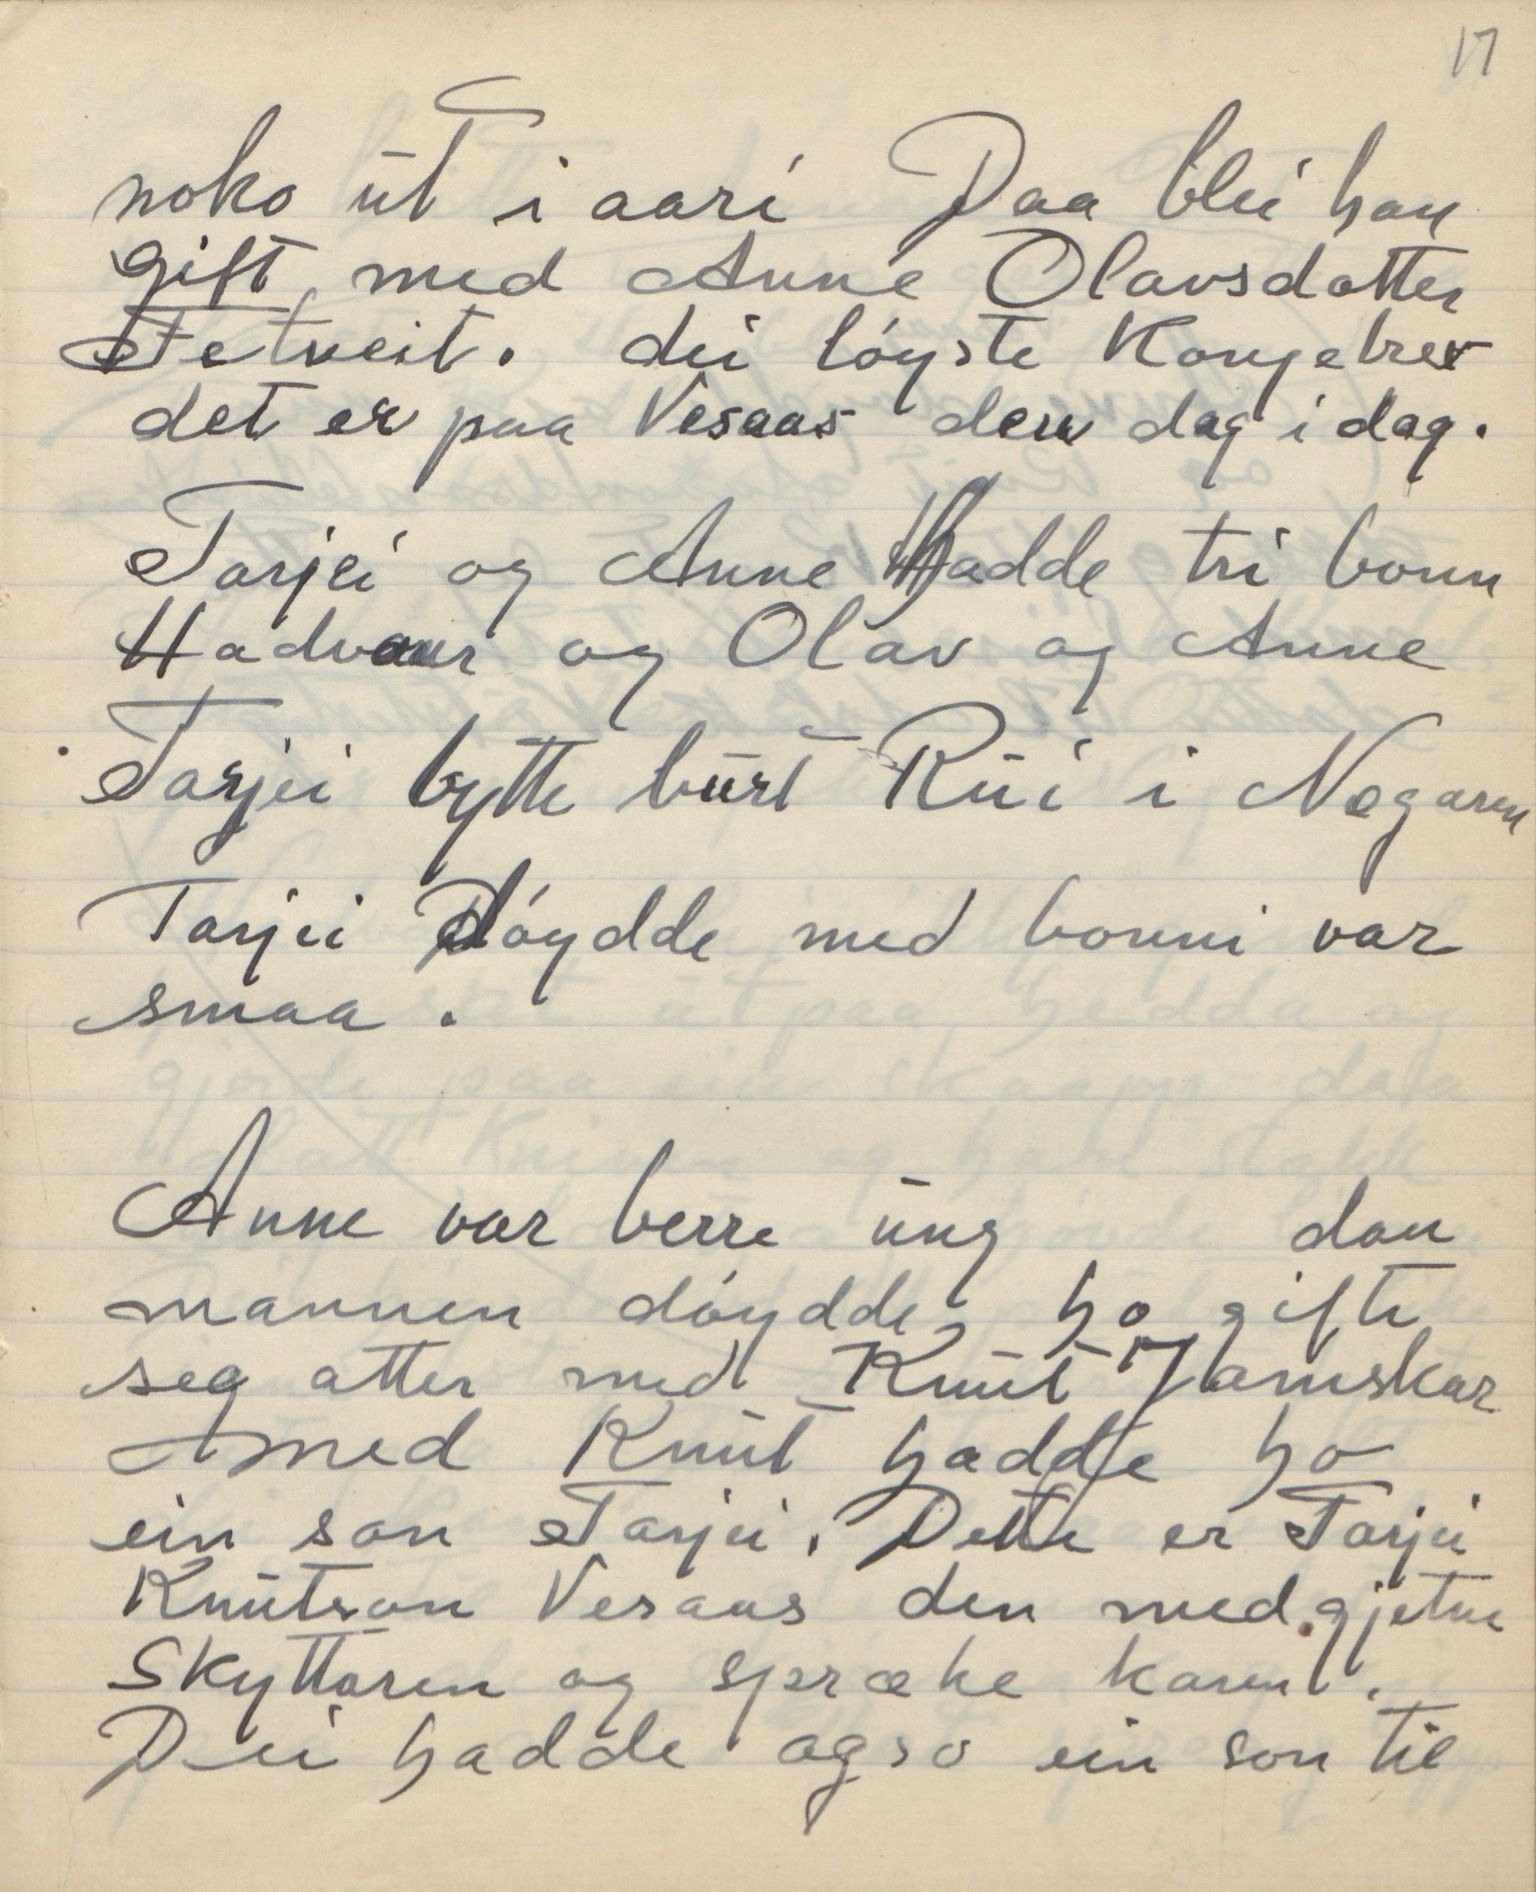 17
noko ut i aari Daa blei han
gift med Anne Olavsdotter
Tetveit. dei lóyste Kongebrev
det er paa Vesaas den dag i dag.
Tarjei og Anne Hadde tri bonn
Hadvaur og Olav og Anne
Tarjei bytte burt Rui i Nogaren
Tarjei Dóydde med bonni var
smaa.
Anne var berre ung dau
mannen dóydde, ho gifte
seg atter med Knut Jamskar
med Knut hadde ho
ein son Tarjei. Dette er Tarjei
Knutson Vesaas den med gjetne
Skyttaren og spræke karen.
Dei hadde ogso ein son til